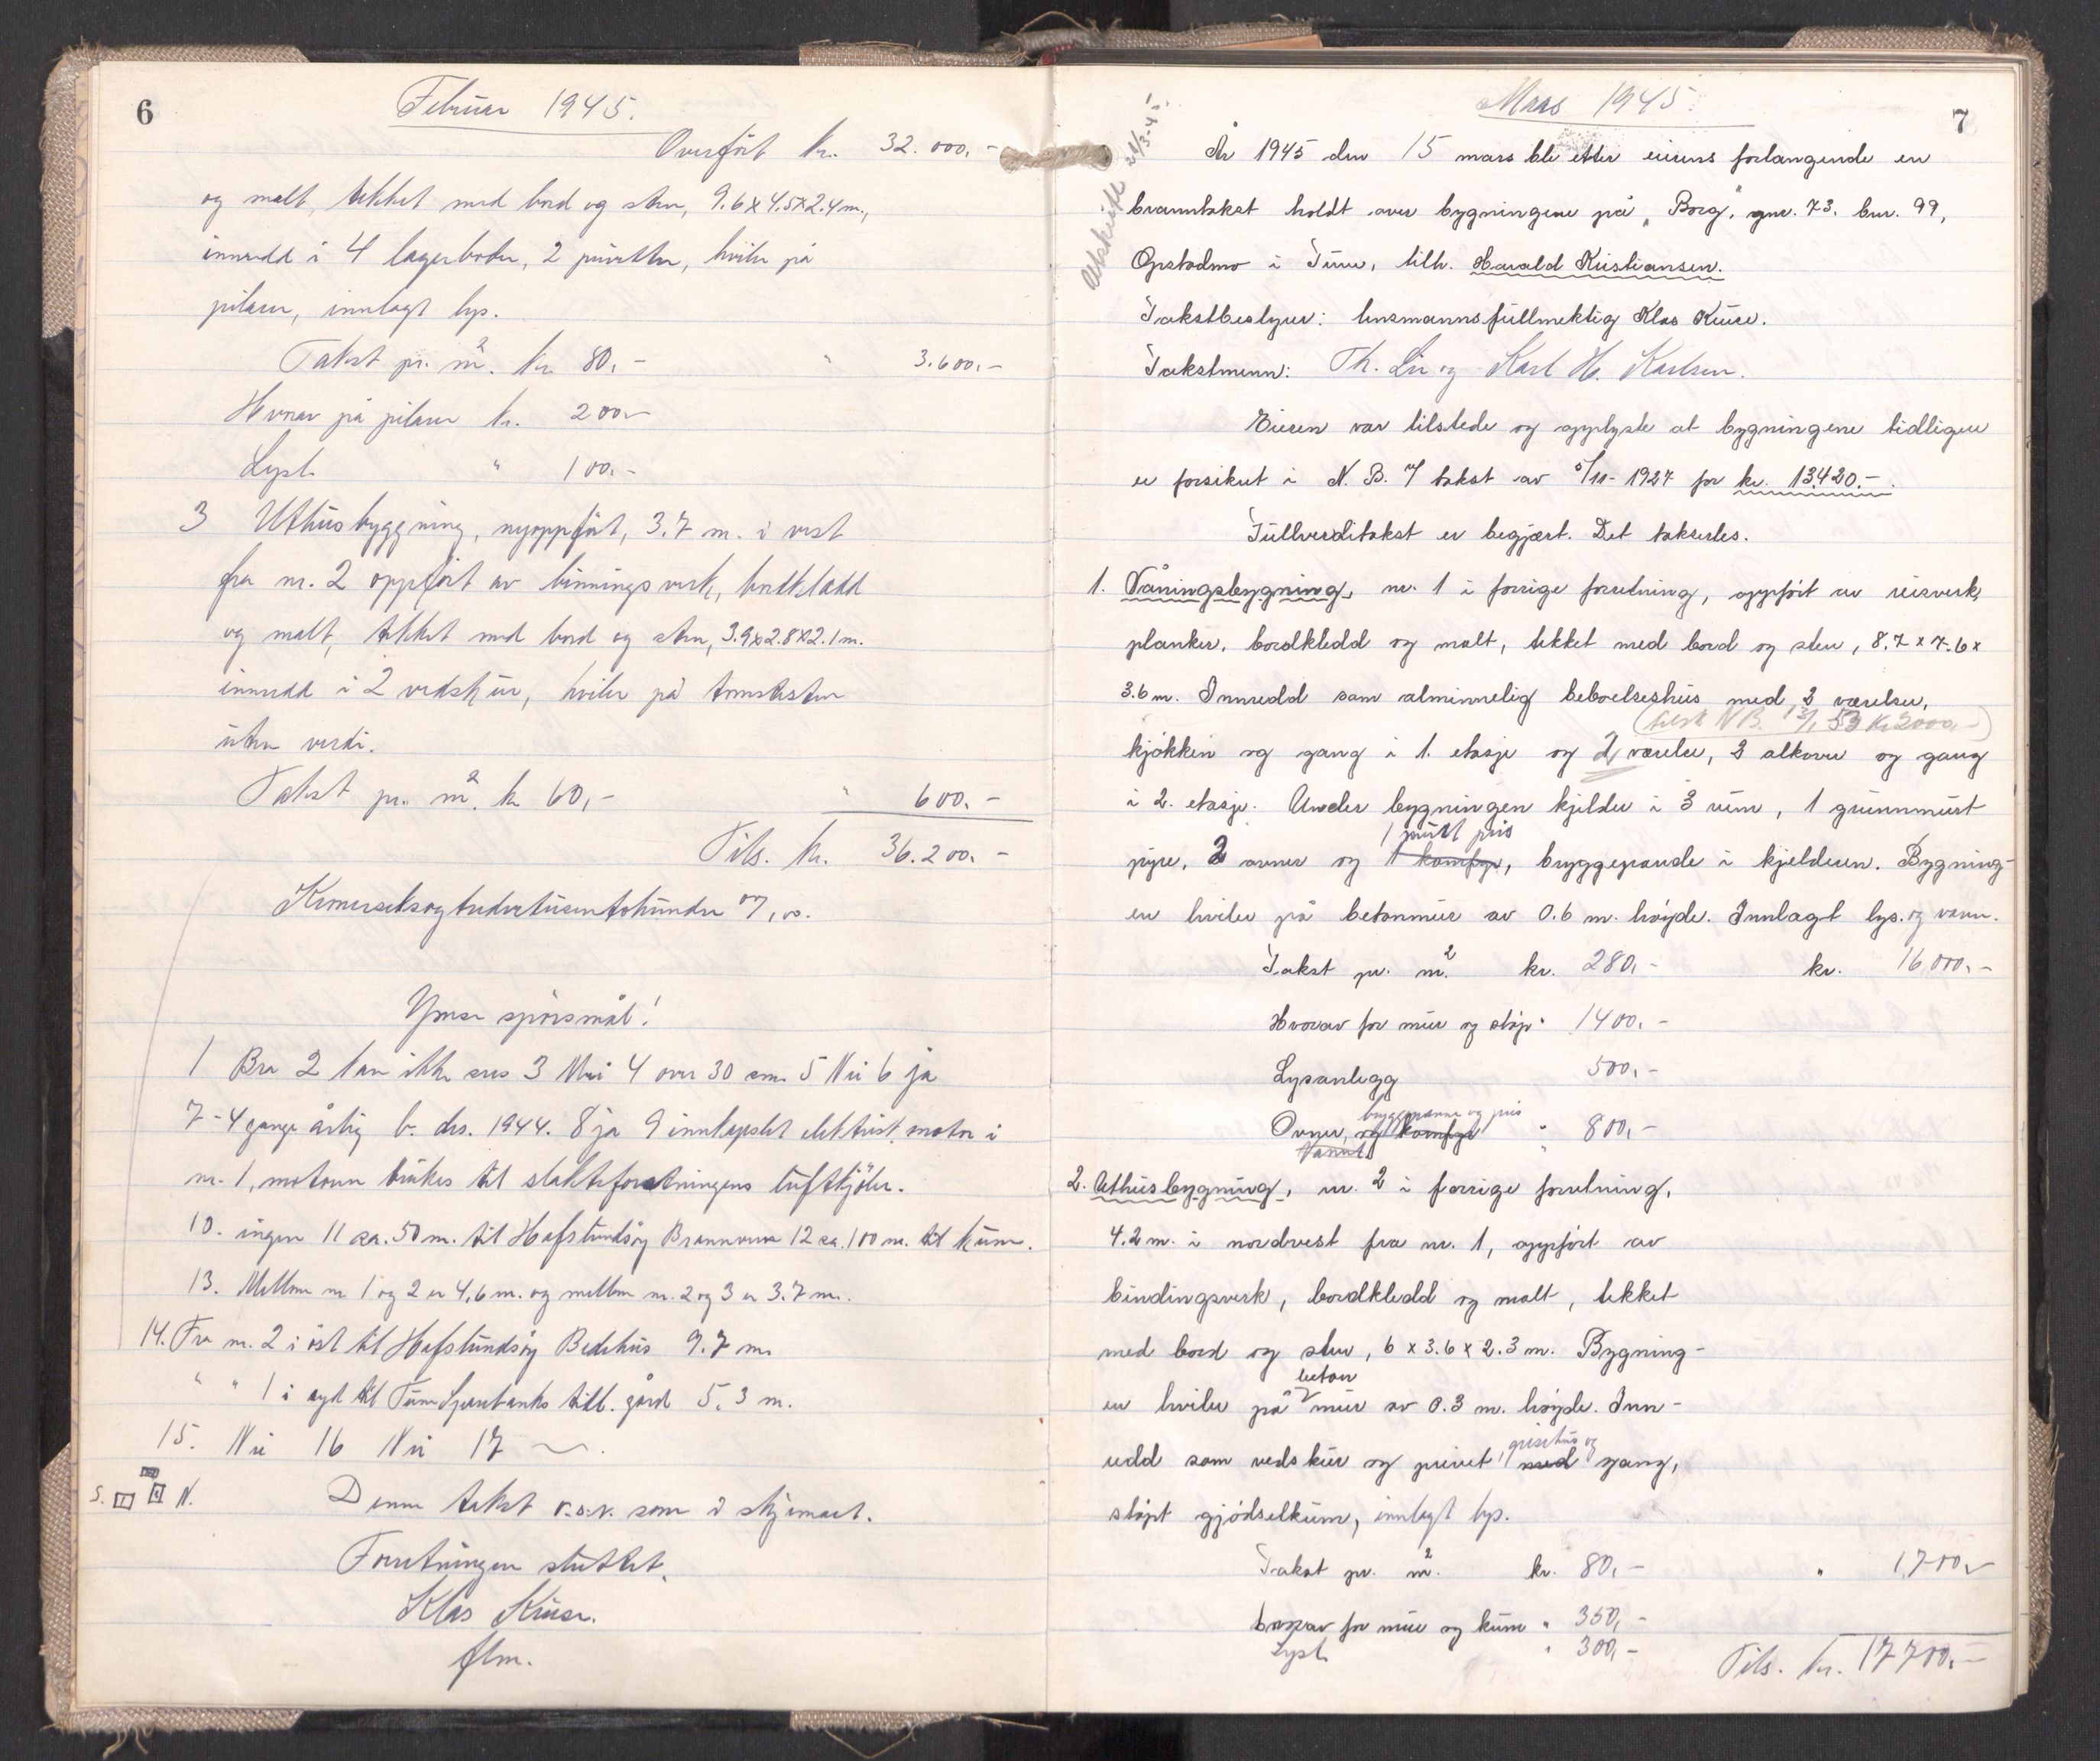 6
Februar 1945.
Overført kr. 32.000,-
og malt, tekket med bord og sten, 9.6x4.5x2.4m.,
innredd i 4 lagerboder, 2 privetter, hviler på
pilarer, innlagt lys.
Takst pr. m². kr. 80,- " 3.600,-
Hvorav på pilarer kr. 200,-
Lyset " 100,-
3 Uthusbyggning, nyoppført, 3.7 m. i vest
fra nr. 2 oppført av binningsverk, bordkledd
og malt, tekket med bord og sten, 3.9x2.8x2.1m.
innredd i 2 vedskjur, hviler på
uten verdi.
Takst pr. m². kr. 60,- " 600.-
Tils. kr. 36.200.-
Kronersekstusentohundre
Ymse spørsmål!
1 Bra 2 kan ikke sees 3 Nei 4 over 30 cm. 5 Nei 6 ja
7-4 gange årlig b. des. 1944. 8 ja 9 innkapslet elektrisk motor i
nr. 1, motoren brukes til slakteforretningens luftkjøler.
10. ingen 11 ca. 50 m. til Hafslundsøy Brannvern 12 ca. 100 m. til kum.
13. Mellom nr 1 og 2 er 4,6 m. og mellom nr. 2 og 3 er 3.7 m.
14. Fra nr. 2 i øst til Hafslundsøy Bedehus 9.7 m.
" " 1 i syd til Tune Sparebanks till. gård 5,3 m.
15. Nei 16 Nei 17 ~.
S. N.
Denne takst v.s.v. som i skjemaet.
Forretningen sluttet.
Klas Kruse.
flm.
7
Mars 1945.
Avskrift 21/3-45!
År 1945 den 15 mars ble etter eierens forlangende en
branntakst holdt over bygningene på "Borg", gnr. 73. bnr. 99,
Opstadmo i Tune, tilh. Harald Kristiansen.
Takstbestyrer: lensmannsfullmektig Klas Kruse.
Takstmenn: Th. Lie og Karl H. Karlsen.
Eieren var tilstede og opplyste at bygningene tidligere
er forsikret i N. B. 7 takst av 5/10-1927 for kr. 13420.-.
Fullverditakst er begjært. Det takserles.
1. Våningsbygning, nr. 1 i forrige forretning, oppført av reisverk,
planker, bordkledd og malt, tekket med bord og sten, 8.7 x 7.6 x
3.6 m. Innredd som alminnelig beboelseshus med 3 værelser,
N B. 13/1 53 Kr. 2000,-
kjøkken og gang i 1. etasje og 2 værelse, 3 alkover og gang
i 2. etasje. Under bygningen kjelder i 3 rum, 1 grunnmurt
1 murt pris
pipe, 2 ovner og 1 komfyr, bryggepande i kjelderen. Bygning-
en hviler på betonmur av 0.6 m. høyde. Innlagt lys. og vann.
Takst pr. m². kr. 280,- kr. 16000,-
Hvorav for mur og støp " 1400,-
Lysanlegg 500,-
bryggepanne og pris
Ovner, og komfyr " 800,-
Vannl. "
2. Uthusbygning, nr. 2 i forrige forretning,
4.2 m. i nordvest fra nr. 1, oppført av
bindingsverk, bordkledd og malt, tekket
med bord og sten, 6 x 3.6 x 2.3 m. Bygning-
beton
en hviler på mur av 0.3 m. høyde. Inn-
grisehus og
redd som vedskur og privet, med gang,
støpt gjødselkum, innlagt lys.
Takst pr. m². kr. 80,- " 1,700,-
hvorav for mur og kum " 350,-
Lyset " 300,-
Tils. kr. 17700,-